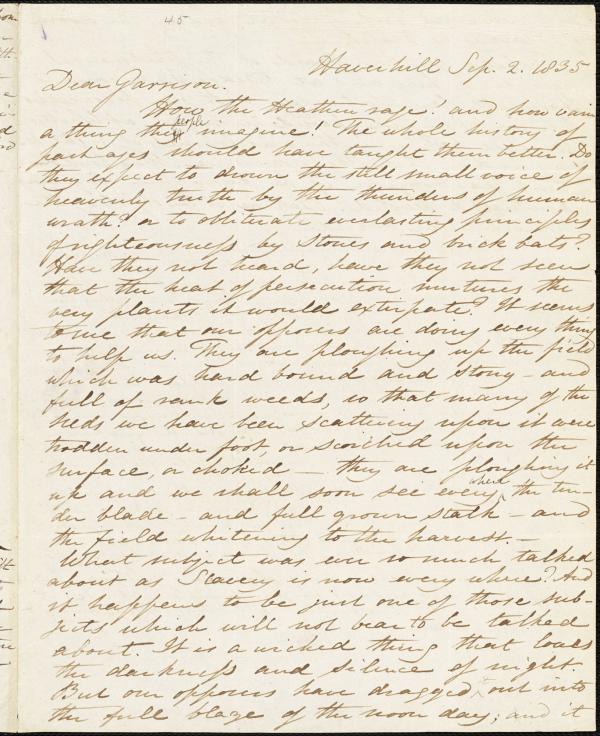 45
Haverhill Sep. 2. 1835
Dear Garrison.
How the Heathen rage! and how vain
a thing the people imagine! The whole history of
past ages should have taught them better. Do
they expect to drown the still small voice of
heavenly truth by the thunders of human
wrath? or to obliterate everlasting principles
of righteousness by stones and brick bats?
Have they not heard, have they not seen
that the heat of persecution nurtures the
very plants it would extirpate? It seems
to me that our opposers are doing every thing
to help us. They are ploughing up the field
which was hard bound and stony – and
full of rank weeds, so that many of the
seeds we have been scattering upon it were
trodden under foot, or scorched upon the
surface, or choked – they are ploughing it
up and we shall soon see every where the ten-
der blade – and full grown stalk – and
the field whitening to the harvest. –
What subject was ever so much talked
about as Slavery is now every where? And
it happens to be just one of those sub-
jects which will not bear to be talked
about. It is a wicked thing that loves
the darkness and silence of night.
But our opposers have dragged it out into
the full blaze of the noon day; and it